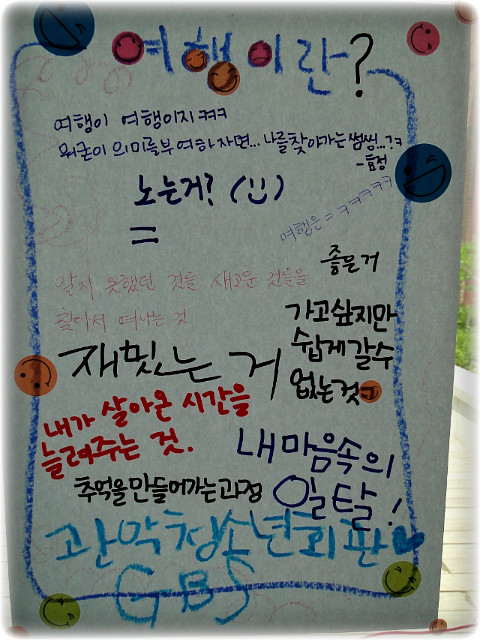 여행이란?
여행이 여행이지 ㅋㅋㅋ
뭐굳이 의미를부여하자면... 나를찾아가는썸씽..?ㅋ
-효정
노는거?
=
여행은=ㅋㅋㅋㅋㅋ
좋은거
알지 못했던 것들 새로운 것들을
찾아서 떠나는 것
가고싶지만
쉽게갈수
없는것
재밌는 거
내가 살아온 시간을
늘려주는 것.
내마음속의
일탈!
추억을만들어가는과정
관악청소년회관
GBS